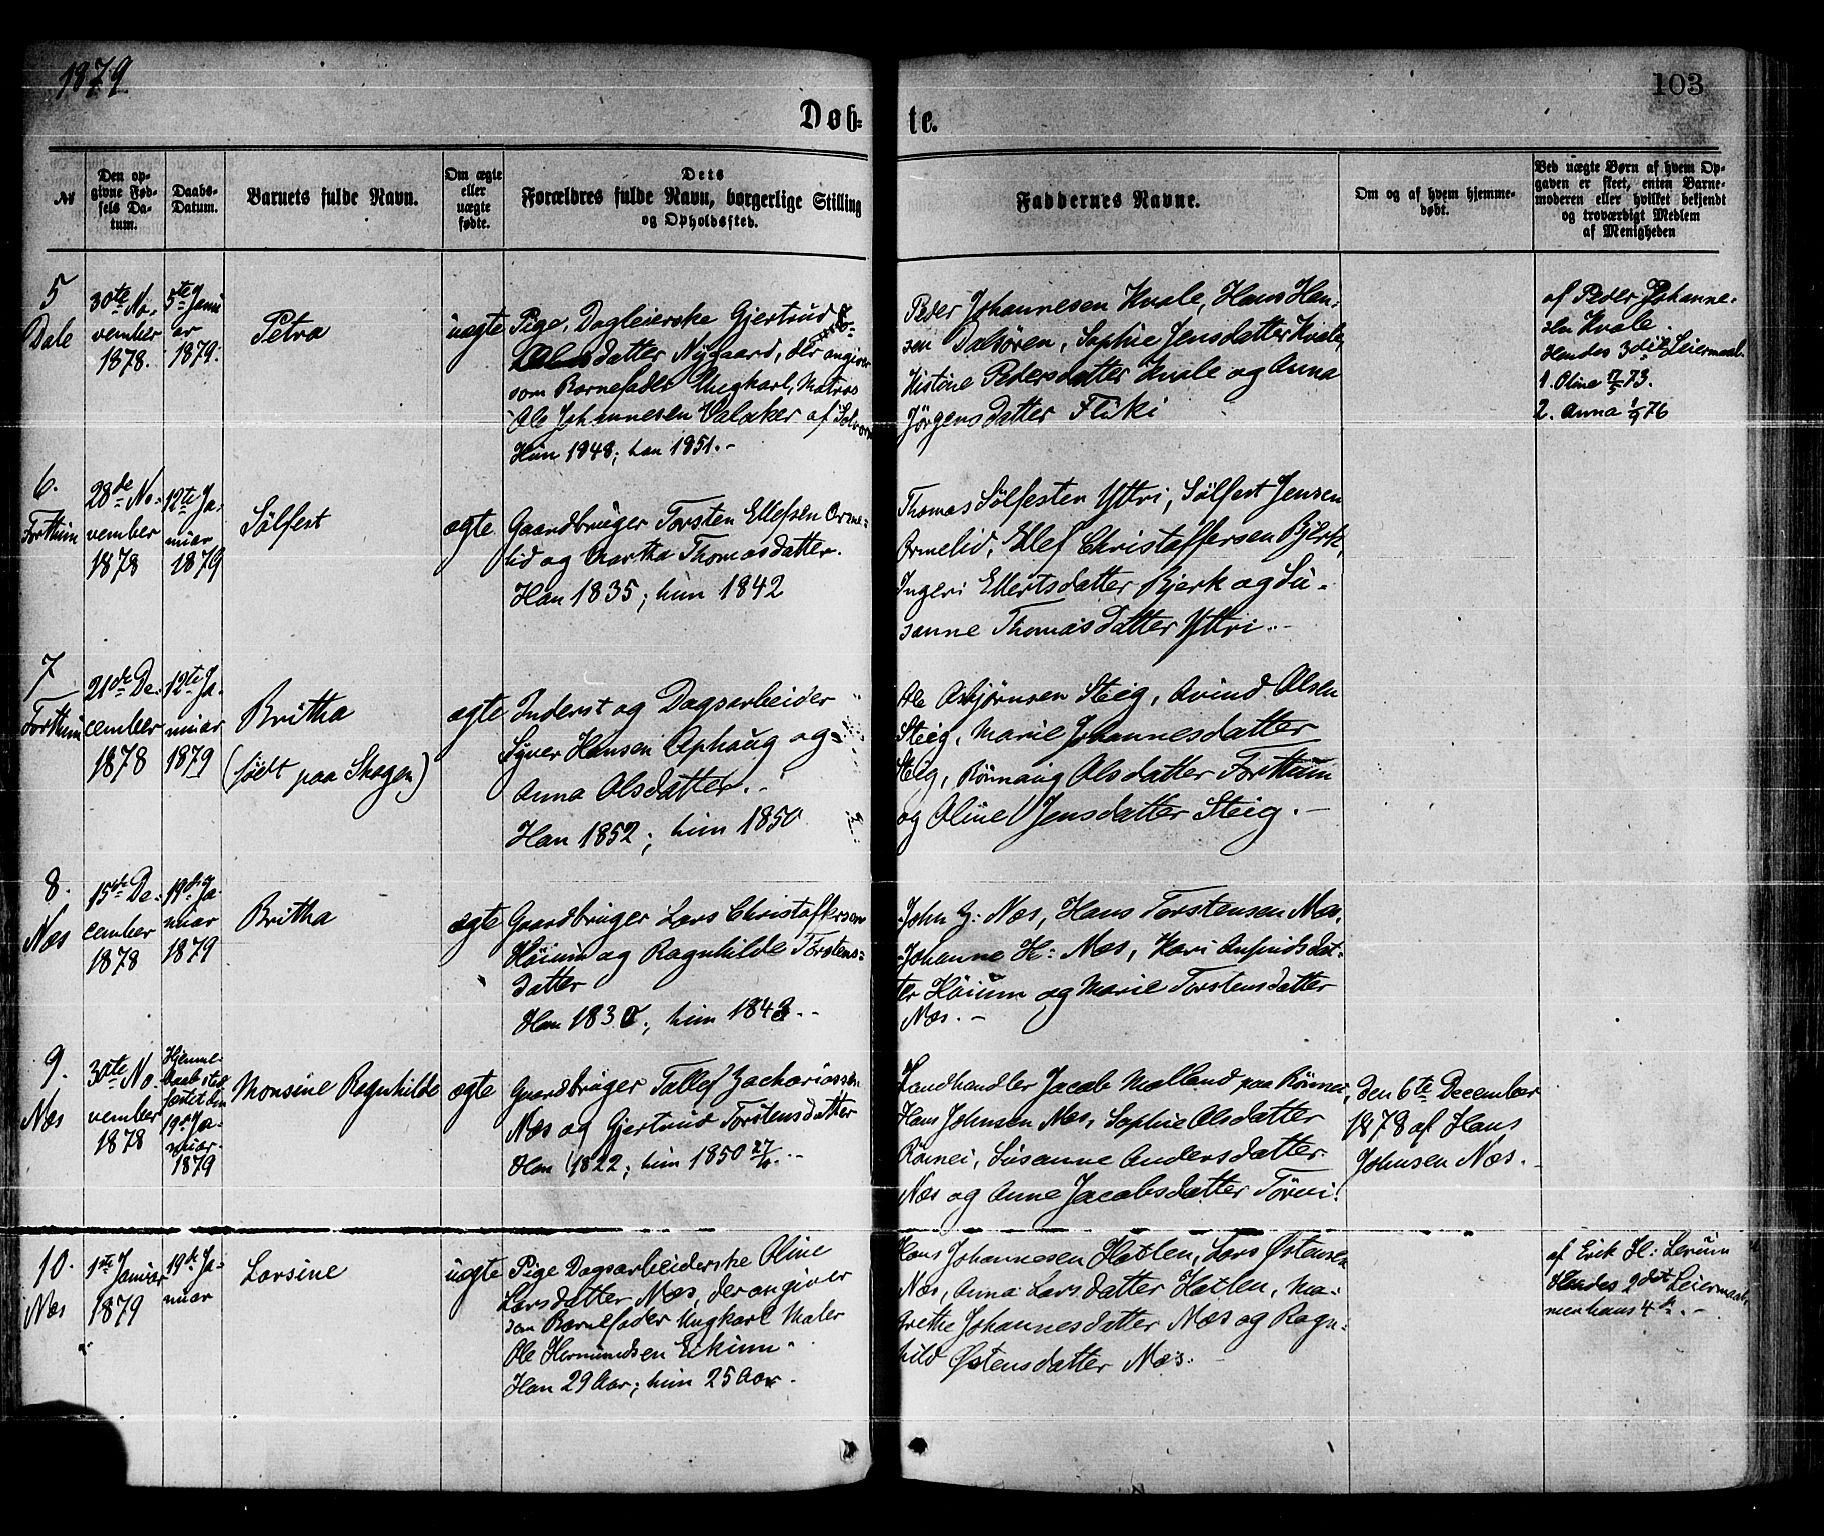 1879
103
Døb-
te.
№
Den op-
givne Fød-
sels Da-
tum.
Daabs-
Datum.
Barnets fulde Navn.
Om ægte
eller
uægte
fødte.
Dets
Forældres fulde Navn, borgerlige Stilling
og Opholdssted.
Faddernes Navne.
Om og af hvem hjemme-
døbt.
Ved uægte Børn af hvem Op-
gaven er skeet, enten Barne-
moderen eller hvilket bekjendt
og troværdigt Medlem
af Menigheden
5
Dale
30te No-
vember
1878.
5te Janu
ar
1879.
Petra
uægte
Pige, Dagleierske Gjertrud
datter Nygaard, der angiver
som Barnefader Ungkarl, Matros
Ole Johannesen Valaker af Solvorn
Hun 1848; han 1851.-
Peder Johannesen Kvale, Hans Han-
sen Dalsøren, Sophie Jensdatter Kvale,
Kistine Pedersdatter Kvale og Anna
Jørgensdatter Fliki
af Peder Johanne-
sen Kvale.
Hendes 3die Leiermaal
1. Oline 73.
2. Anna 76
6.
Forthun
28de No-
vember
1878
12te Ja-
nuar
1879
Sølfest
ægte
Gaardbruger Torsten Ellefsen Orme-
lid og Martha Thomasdatter.
Han 1835; hun 1842
Thomas Sølfesten Yttri, Sølfest Jensen
Ormelid, Ellef Christoffersen Bjerk,
Ingeri Ellertsdatter Bjerk og Su-
sanne Thomasdatter Yttri.-
7
Forthun
21de De-
cember
1878
12te Ja-
nuar
1879
Britha
(født paa Skagen)
ægte
Inderst og Dagsarbeider
Syver Hansen Ophaug og
Anna Olsdatter.-
Han 1852; hun 1850
Ole Asbjørnsen Steig, Avind Olsen
Steig, Marie Johannesdatter
Steig, Rönnaug Olsdatter Forthun
og Oline Jensdatter Steig.-
8.
Næs
15de De-
cember
1878
19de Ja-
nuar
1879
Britha
ægte
Gaardbruger Lars Christoffersen
Høium og Ragnhilde Torstens-
datter
Han 1830; hun 1843.-
John G: Næs, Hans Torstensen Næs,
Johanne H: Næs, Kari Anfindsdat-
ter Høium og Marie Torstensdatter
Næs.-
9.
Næs
30te No-
vember
1878
Hjemme-
daab stad
fæstet den
19de Ja-
nuar
1879
Monsine Ragnhilde
ægte
Gaardbruger Tollef Zachariassen
Næs og Gjertrud Torstensdatter
Han 1822; hun 1850
Landhandler Jacob Molland paa Rönnei,
Hans Johnsen Næs, Sophie Olsdatter
Rönnei, Susanne Andersdatter
Næs og Anne Jacobsdatter Törvi.
Den 6te December
1878 af Hans
Johnsen Næs.-
10.
Næs
1ste Januar
1879
19de Ja-
nuar
Larsine
uægte
Pige Dagsarbeiderske Oline
Larsdatter Næs, der angiver
som Barnefader Ungkarl Maler
Ole Hermundsen Eikum.
Han 29 Aar; hun 25 Aar.
Hans Johannesen Hatlen, Lars Østensen
Næs, Anna Larsdatter Hatlen, Ma-
grethe Johannesdatter Næs og Ragn-
hild Østensdatter Næs.-
af Erik H: Lerum
Hendes 2det Leiermaal
men hans 4de.-